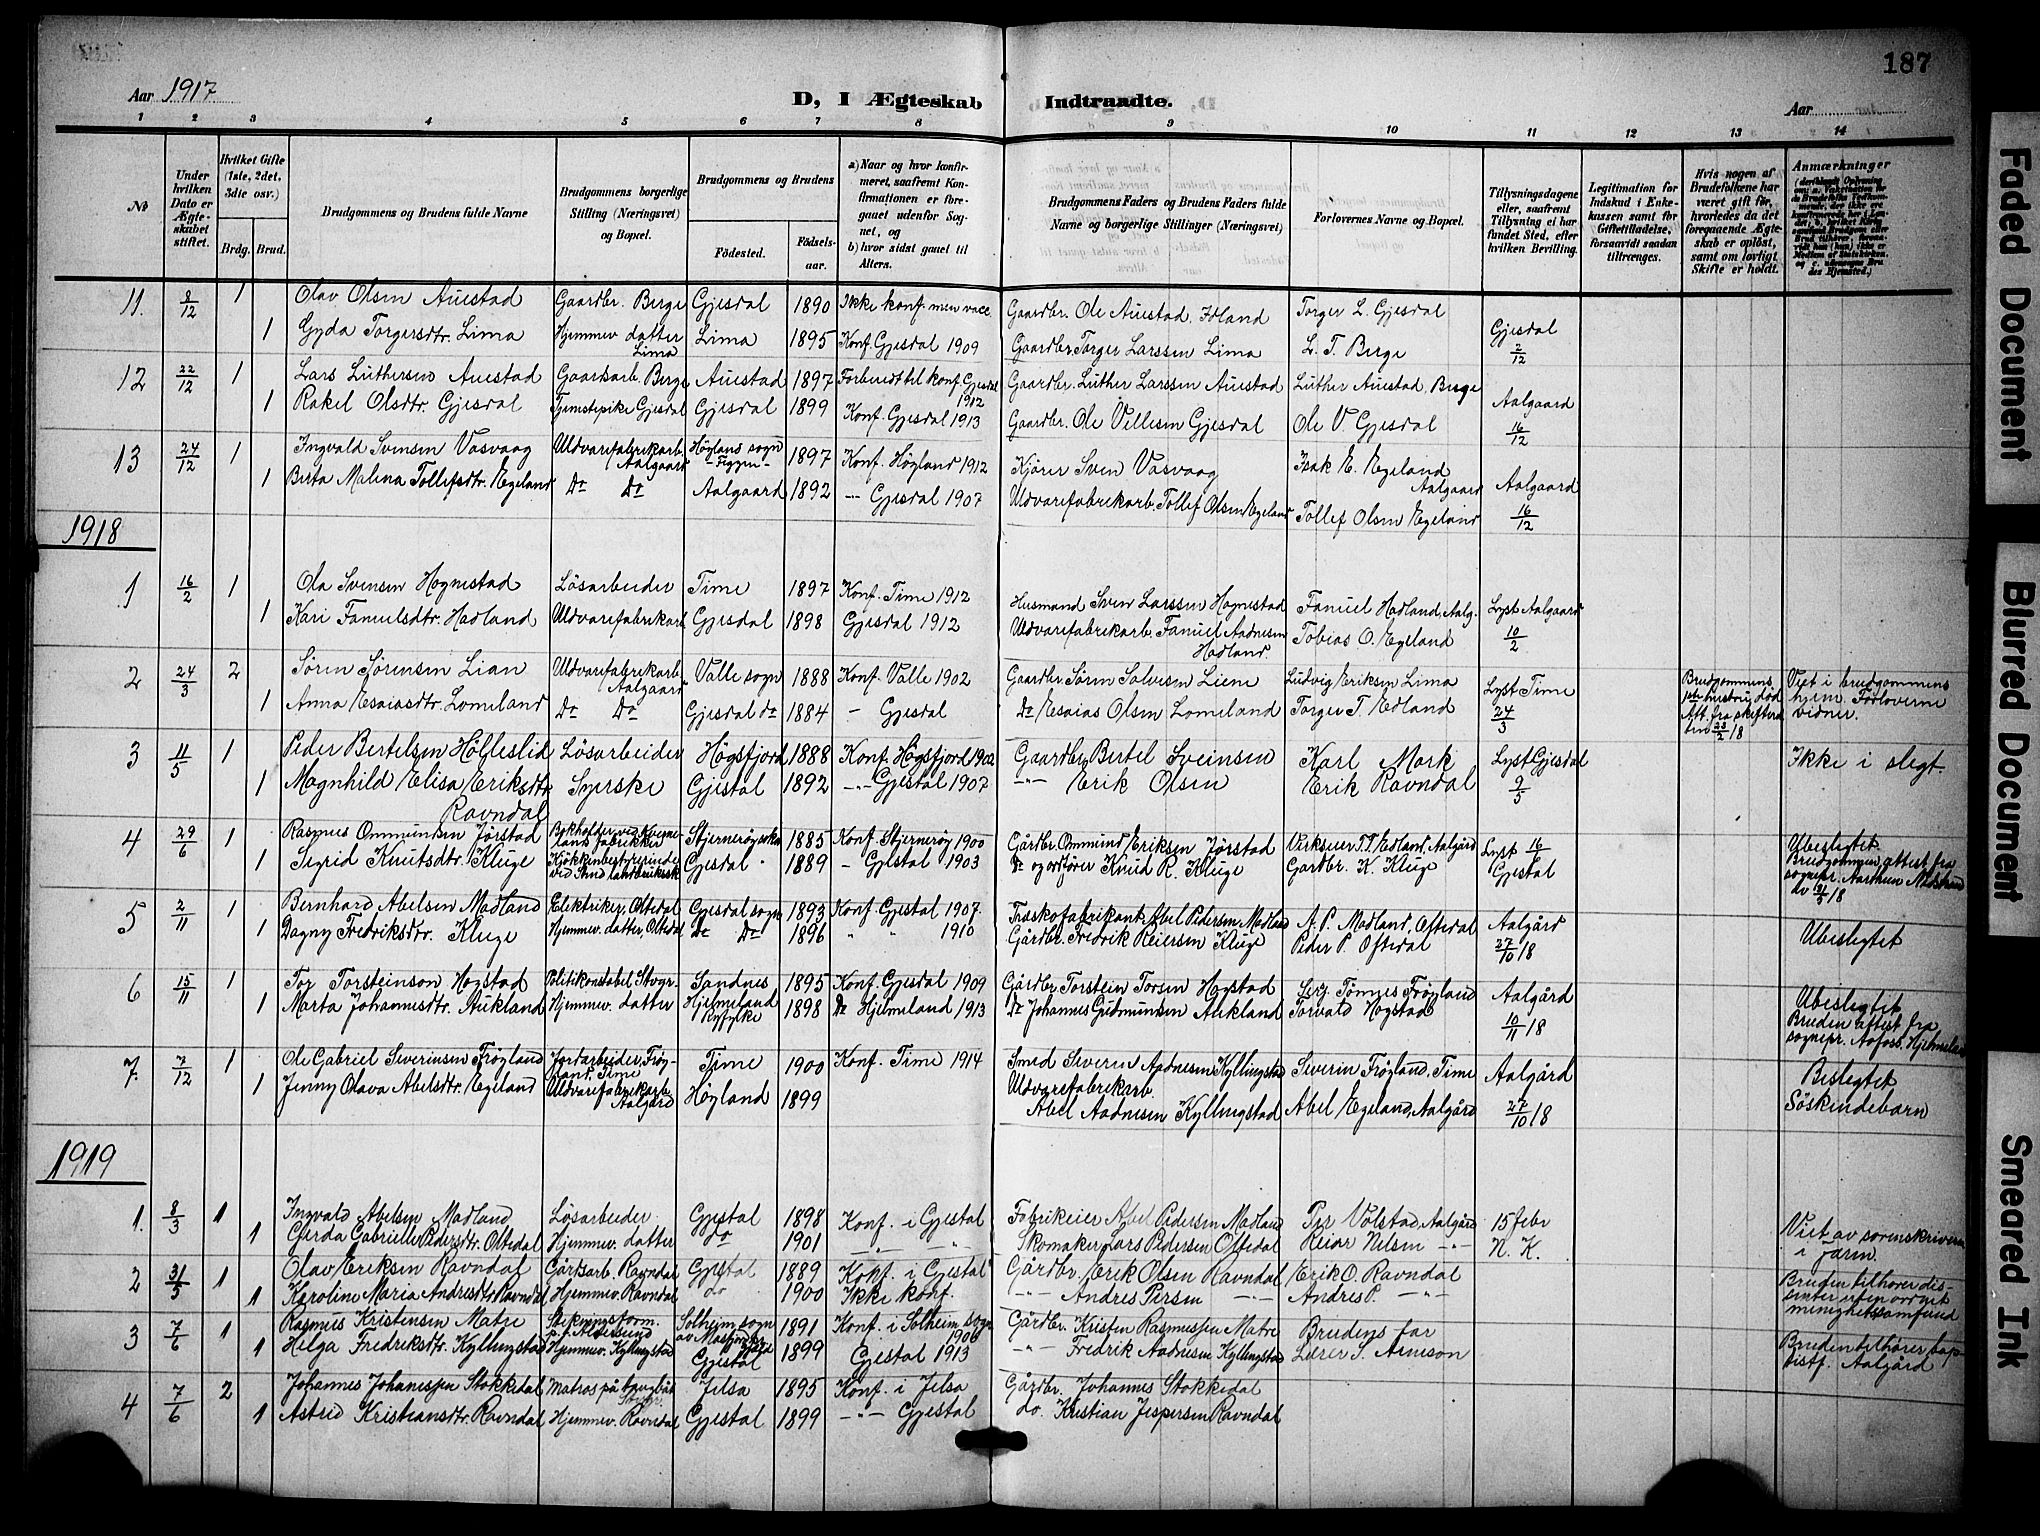 187
Aar 1917
D, I Ægteskab Indtraadte.
Aar
1 2 3 4 5 6 7 8 9 10 11 12 13 14
No
Under hvilken Dato er Ægteskabet stiftet.
Hvilket Gifte (1ste, 2det, 3die osv.)
Brdg. Brud.
Brudgommens og Brudens fulde Navne
Brudgommens borgerlige Stilling (Næringsvei) og Bopæl.
Brudgommens og Brudens
Fødested.
Fødselsaar.
a) Naar og hvor konfirmeret, saafremt Konfirmationen er foregaaet udenfor Sognet, og
b) hvor sidst gaaet til Alters.
Brudgommens Faders og Brudens Faders fulde Navne og borgerlige Stillinger (Næringsvei)
Forlovernes Navne og Bopæl.
Tillysningsdagene eller, saafremt Tillysning ei har fundet Sted, efter hvilken Bevilling.
Legitimation for Indskud i Enkekassen samt for Giftetilladelse, forsaavidt saadan tiltrænges.
Hvis nogen af Brudefolkene har været gift før, hvorledes da det foregaaende Ægteskab er opløst, samt om lovligt Skifte er holdt.
Anmærkninger
11. 8/12 1 Olav Olsen Auestad Gaardbr. Berge Gjesdal 1890 Ikke konf. men vacc. Gaardbr. Ole Auestad, Idland Torger L. Gjesdal Gjesdal 2/12
1 Gyda Torgersdtr. Lima Hjemmev. datter Lima Lima 1895 Konf. Gjesdal 1909 Gaardbr. Torger Larssen Lima L. T. Berge
12 22/12 1 Lars Luthersen Auestad Gaardsarb. Berge Auestad 1897 Forberedt til konf. Gjesdal 1912 Gaardbr. Luther Larssen Auestad Luther Auestad, Berge Aalgaard 16/12
1 Rakel Olsdtr. Gjesdal Tjenestepike Gjesdal Gjesdal 1899 Konf. Gjesdal 1913 Gaardbr. Ole Villesen Gjesdal Ole V. Gjesdal
13 24/12 1 Ingvald Svensen Vasvaag Uldvarefabrikarb. Aalgaard Høylands sogn - Figgen - 1897 Konf. Høyland 1912 Kjører Sven Vasvaag Isak E. Egeland Aalgaard Aalgaard 16/12
1 Berta Malena Tollefsdtr. Egeland Do Do Aalgaard 1892 — Gjesdal 1907 Uldvarefabrikarb. Tollef Olsen Egeland Tollef Olsen Egeland
1918
1 16/2 1 Ola Svensen Hognestad Løsarbeider Time 1897 Konf. Time 1912 Husmand Sven Larssen Hognestad Fanuel Hadland, Aalg. Lyst Aalgaard 10/2
1 Kari Fanuelsdtr. Hadland Uldvarefabrikarb Gjesdal 1898 Gjesdal 1912 Uldvarefabrikarb. Fanuel Aadnesen Hadland. Tobias O. Egeland
2 24/3 2 Søren Sørensen Lian Uldvarefabrikarb. Aalgaard Valle sogn 1888 Konf. Valle 1902 Gaardbr. Søren Salvesen Liene Ludvig Eriksen Lima Lyst Time 24/3 Brudgommens 1ste hustru død Att. fra skifteretten 23/2 18 Viet i brudgommens hjem. Forloverne vidner.
1 Anna Esaiasdtr. Lomeland Do Do Gjesdal do 1884 — Gjesdal Do Esaias Olsen Lomeland Torger T. Edland
3 11/5 1 Peder Bertelsen Hølleslid Løsarbeider Høgsfjord 1888 Konf. Høgsfjord 1902 Gaardbr. Bertel Sveinsen Karl Mork Lyst Gjesdal 9/5 Ikke i slegt.
1 Magnhild Elisa Eriksdtr. Ravndal Syerske Gjestal 1892 —"— Gjestal 1907 —"— Erik Olsen Erik Ravndal
4 29/6 1 Rasmus Ommundsen Jørstad Bokholder ved Kvernelands fabrikker Stjernerøy 1885 Konf. Stjernerøy 1900 Gårdbr. Ommund Eriksen Jørstad Virkseier T. T. Edland, Aalgård Lyst 16/6 Gjestal Ubeslegtet. Brudgommen attest fra
1 Sigrid Knutsdtr. Kluge Kjøkkenbestyrerinde Gjesdal 1889 — Gjestal 1903 Do og ordfører Knud R. Kluge Gardbr. K. Kluge
5 2/11 1 Bernhard Abelsen Madland Elektriker, Oltedal Gjesdal sogn 1893 Konf Gjestal 1907. Træskofabrikant Abel Pedersen Madland A. P. Madland, Oftedal Aalgård 27/10 18 Ubeslegtet
1 Dagny Fredriksdtr. Kluge Hjemmev. datter, Oltedal Do Do 1896 " " 1910 Gårdbr. Fredrik Reiersen Kluge Peder P. Oftedal
6 15/11 1 Tor Torsteinson Hogstad Politikonstabel Stvgr. Sandnes 1895 Konf. Gjesdal 1909 Gårdbr Torstein Torsen Hogstad Serg. Tønnes Frøyland Aalgård 10/11 18 Ubeslegtet Bruden attest fra sognepr. Aafoss. Hjelmeland
1 Marta Johannesdtr. Aukland Hjemmev. datter Hjelmeland Ryfylke 1898 Do Hjelmeland 1913 Do Johannes Gudmundsen Aukland Torvald Hogstad
7. 7/12 1 Ole Gabriel Severinsen Frøyland Jordarbeider, Frøyland, Time Time 1900 Konf. Time 1914 Smed Severin Aadnesen Kyllingstad Severin Frøyland, Time Aalgård 27/10 18 Beslegtet Søskindebarn
1 Jenny Olava Abelsdtr. Egeland Uldvarefabrikarb. Aalgård Høyland 1899 Uldvarefabrikarb. Abel Aadnesen Kyllingstad Abel Egeland, Aalgård
1919
1. 8/3 1 Ingvald Abelsen Madland Løsarbeider Gjestal 1898 Konf. i Gjestal Fabrikeier Abel Pedersen Madland Per Vølstad, Aalgård 15 febr N. K. Viet av sorenskriveren i Jæren.
1 Gerda Gabrielle Pedersdtr. Oltedal Hjemmev. datter do 1901 —"— Skomaker Lars Pedersen Oftedal Reiar Nilsen —"—
2 31/5 1 Olav Eriksen Ravndal Gårdsarb. Ravndal Gjestal 1889 Konf. i Gjestal Gårdbr. Erik Olsen Ravndal Erik O. Ravndal Bruden tilhører dissenter uten ordnet menighetssamfund
1 Karoline Maria Andresdtr Ravndal Hjemmev. Ravndal do 1900 Ikke konf. —"— Andres Persen —"— Andres P. —"—
3 7/6 1 Rasmus Kristensen Matre Solheim sogn 1891 Konf. i Solheim sogn 1906 Gårdbr. Kristen Rasmussen Matre Brudens far Bruden tilhører baptistf. Aalgård
1 Helga Fredriksdtr. Kyllingstad Hjemmev. Kyllingstad Gjestal 1899 Gjestal 1913 —"— Fredrik Aadnesen Kyllingstad Lærer S. Arneson
4 7/6 2 Johannes Johanessen Stokkedal Matros på Jelsa 1895 Konf. i Jelsa Gårdbr. Johannes Stokkedal
1 Astrid Kristiansdtr. Ravndal Hjemmev. Ravndal Gjestal 1899 —"— Gjestal do. Kristian Jespersen Ravndal
Faded Document
Blurred Document
Smeared Ink